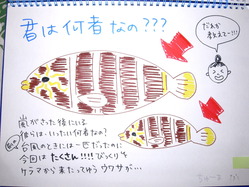 君は何者なの???
だれか
教えてー!!!
嵐がさった後にいる
彼らはいったい何者なの?
台風のときには一匹だったのに
今回はたくさん!!!!びっくり
ケラマから来たってゆうウワサが…